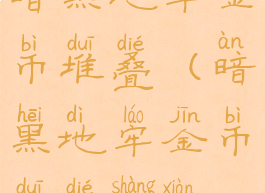 暗黑地牢金
bì duī dié àn
币堆叠(暗
hēi dì láo jīn bì
黑地牢金币
duī dié shàng xiàn